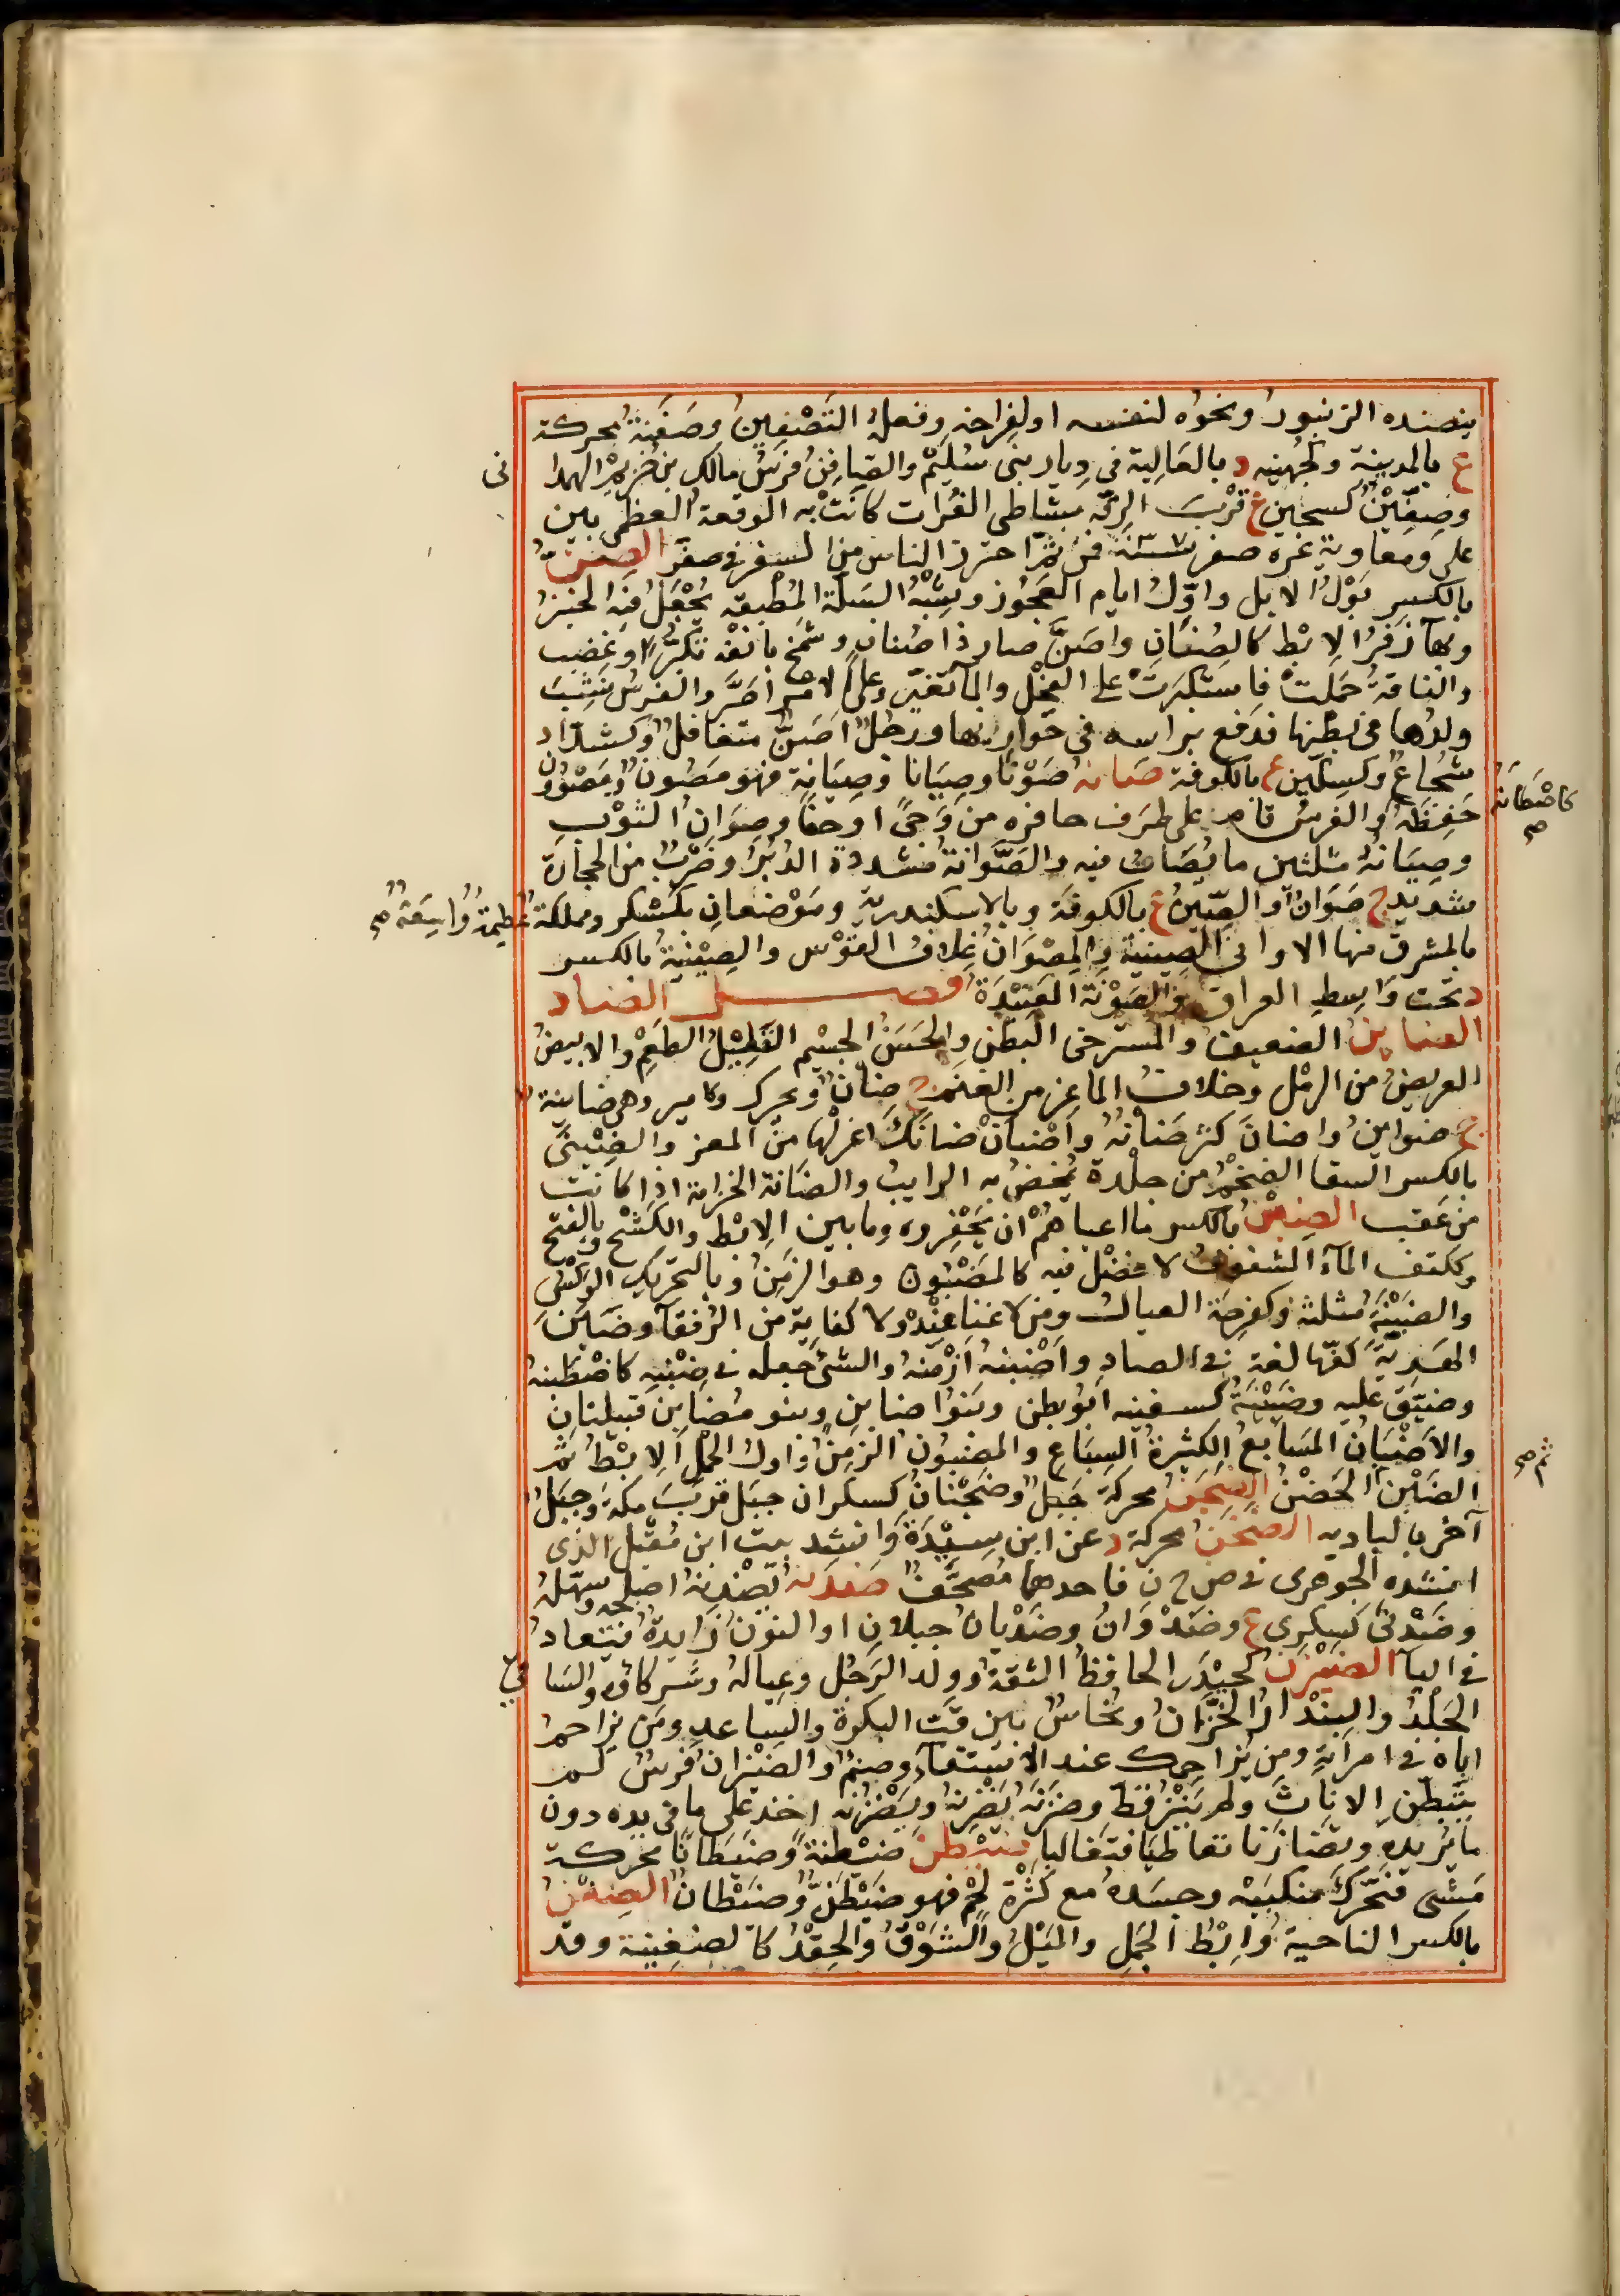 ينضده الزنبور ونحوه لنفسه او لفراخه وفعله التَصْفِين وصَفَنَة محركة
ع بالمدينة ولجُهينه د بالعَالِية في دِيار بنى سُليم والصافِن فرَس مالك بن خُزيم الهمدا نى
وصِفّين كسجين ع قرْبَ الرقّه بشاطى الفُرات كانتْ به الوقعة العظمى بين
على ومعاوية غره صفر سنة ٣٧ فمن ثمّ احترز الناس من السفر في صفر الصِنّ
بالكسر بَوْل الابل واوّل ايام العَجُوز وشِبْه السَلة المُطبقه يُجْعَل فيه الخبز
وبهآ ذفَرُ الاِبْط كالصُنَانِ واصَنّ صار ذا صُنان وشمخ بانفه تكبّرا وغضب
والناقة حَمَلتْ فاستكبرَتْ على الفحْل والمآ تغيّر وعلى الامر اصَرَّ والفرس نشِبَ
ولدُها في بطنها فدفع براسه في خَوْرانها ورجل اصَنّ متغافل وكشدّاد
شجُاع وكسِكّين ع بالكوفة صانه صَوْنا وصِيَانا وصِيَانة فهو مَصُون ومَصْوُون
حَفِظَه كاصْطانه صح والفرس قام على طرف حافره من وَجًى او حفًا وصِوَان الثوْب
وصِيَانه مثلثين ما يُصَان فيه والصَّوّانة مُشددة الدُبُر وضَرْب من الحجارة
شديد ج صَوّان والصِّين ع بالكوفة وبالاسكندرية ومَوْضعانِ بكسْكر ومملكة عظيمة وُاسِعَة صح
بالمشرق منها الاوانى الصِينية والمِصْوَان غِلاف القوْس والصِيْنية بالكسر
د تحت وَاسِطِ العراق والصَوْنَة العَتِيْدَة فصـل الضاد
الضاين الضعيف والمسترخى البَطن والحَسَن الجسْم القليْل الطعْم والابيض
العريض من الرمْل وخلاف الماعِز من الغنم ج ضان ويحرك وكامير وهى ضاينة
ج ضواين واضانَ كثر ضانه واضْئانْ ضانَك اعزلْها من المعز والضِئنىّ
بالكسر السقا الضخْم من جلْدة يُمخضُ به الرايب والضانة الخزامة اذا كانت
من عَقب الضِبْن بالكسر ما اعياهُمْ ان يَحْفِروه وما بين الاِبْط والكَشْح وبالفتح
وككتف المآ المشفوف لا فضْل فيه كالمَضبُون وهو الزمِن وبالتحريك الوَكْس
والضبْنَة مثلثة وكفرحَة العيال ومن لا غَنا عنْده ولا كفاية من الرُفقآ وضَبَن
الهَدِيّة كفّها لغة في الصاد واَضْبنه اَزْمَنه والشىْ جعله في ضِبْنِه كاضْطَبنه
وضيّق عليه وضَبيْنَة كسفينه ابُو بطن وبَنوا ضابن وبنو مُضابن قبيلتان
والاَضْبان المَسَابع الكثيرة السِبَاع والمضبُون الزمِن واول الحمل الاِبْط ثم
الضَبْن ثم صح الحَضْن الضَجَن محركة جَبل وضَجْنان كسكران جبَل قربَ مكة وجبَل
آخر بالبادية الضحَن محركة د عن ابن سِيْدَة وانشد بيت ابن مُقبل الذى
انشده الجوهرى في ض ج ن فاحدهما مُصحَّف ضدَنه يَضْدِنه اصْلحه وسهّله
وضَدْنى كسكرى ع وضَدْوَانُ وضَدْيانُ جبلان او النوْن زايدة فيُعاد
في اليآ الضيْزن كحيْدَر الحافظ الثقة وولد الرَجُل وعياله وشركاؤه والسا قى
الجَلْدُ والبنْدار الخزّان ونُحاس بين قَبّ البكرة والسِاعد ومَن يزاحم
اباه في امراته ومن يُزاحمك عند الاستقآ وصنم والضيْزان فرس لم
يتبطن الاناث ولم يَنْزُ قطّ وضزَنَه يَضْزِنه ويَضْزُنه اخذ على ما في يده دون
ما يُريده وتضازَنا تعاطيَا فتغالبا ضيْطن ضَيْطنة وضَيَطانا محركة
مَشى فحَرّك منكبَيْه وجسَده مع كثْرة لحْم فهو ضَيْطنّ وضَيْطان الضِغْن
بالكسر الناحية وُاِبْط الجَمِل والمَيْل والشوْق والحِقْد كالضغِينة وقد